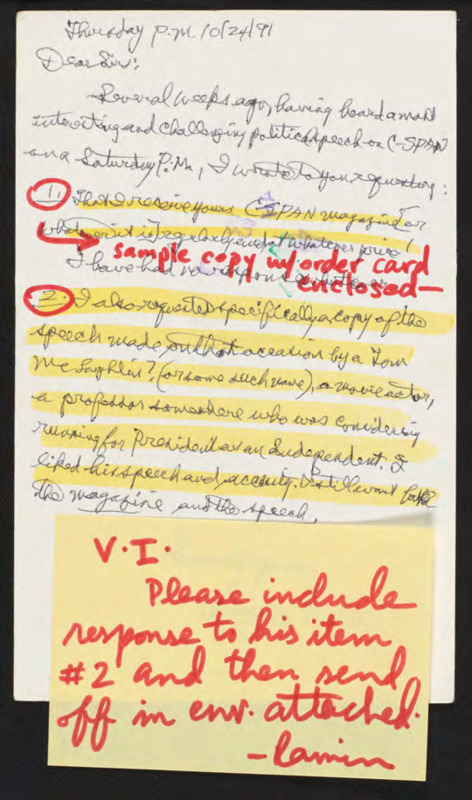 Thursday P.M. 10/24/91
Dear Sir:
Several weeks ago, having heard a most
interesting and challenging political speech on C-SPAN
on a Saturday P.M., I wrote to you requesting:
1) That I receive yours C-SPAN magazine or
whatever it is regularly and at whatever price!
sample copy w/order card
enclosed—
I have had no
2. I also requested specifically a copy of the
speech made on that occasion by a Tom
McLaghlin? (or some such name), a movie actor,
a professor somewhere who was considering
running for President as an Independent. I
liked his speech and acuity. I still want both
the magazine and the speech.
V.I.
Please include
response to his item
#2 and then send
off in env. attached.
-lamin